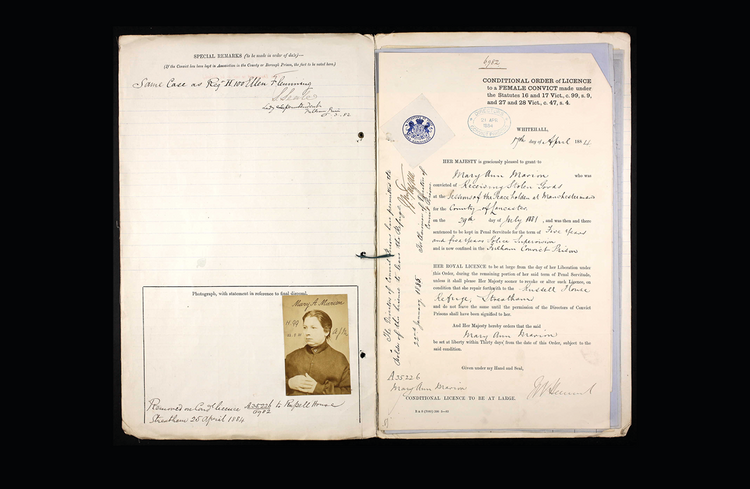 SPECIAL REMARKS (to be made in order of date)—
(If the Convict has been kept in Association in the County or Borough Prison, the fact to be noted here.)
Same Case as Reg. H.100 Ellen Flemming
Photograph, with statement in reference to final discharge
Mary A. Mannion
Removed on Condl licence A3522b/6982 to Russell House
Streatham 25 April 1884
6982
CONDITIONAL ORDER of LICENCE
to a FEMALE CONVICT made under
the Statutes 16 and 17 Vict., c. 99, s. 9,
and 27 and 28 Vict., c. 47, s. 4.
WHITEHALL,
17th day of April 1884
HER MAJESTY is graciously pleased to grant to
Mary Ann who was
convicted of Receiving Stolen Goods
at the Sessions of the Peace holden at Manchester
for the County of Lancaster
on the 29th day of July 1881, and was then and there
sentenced to be kept in Penal Servitude for the term of Five years
and five years Police Supervision
and is now confined in the Fulham Convict Prison
HER ROYAL LICENCE to be at large from the day of her Liberation under
this Order, during the remaining portion of her said term of Penal Servitude,
unless it shall please Her Majesty sooner to revoke or alter such Licence, on
condition that she repair forthwith to the Russell House
Refuge, Streatham
and do not leave the same until the permission of the Directors of Convict
Prisons shall have been signified to her.
And Her Majesty hereby orders that the said
Mary Ann
be set at liberty within Thirty days from the date of this Order, subject to the
said condition.
Given under my Hand and Seal,
A3522b
Mary Ann
CONDITIONAL LICENCE TO BE AT LARGE.
The Director of Convict Prisons has permitted the
holder of this licence to leave the Refuge
22nd January 1885